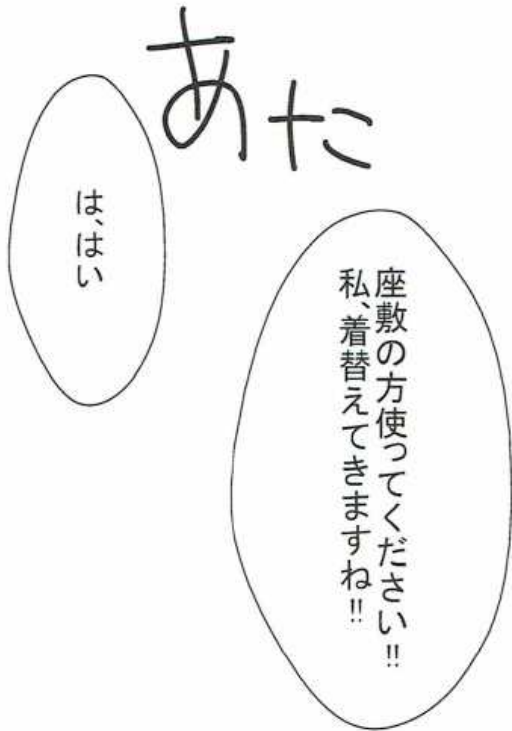 あた
座敷の方使ってください!!
私、着替えてきますね!!
は、はい